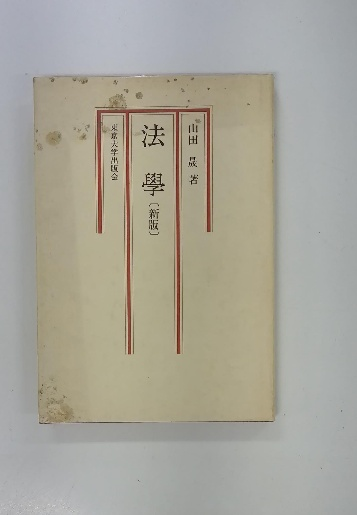 山田 晟 著
法學〔新版〕
東京大学出版会